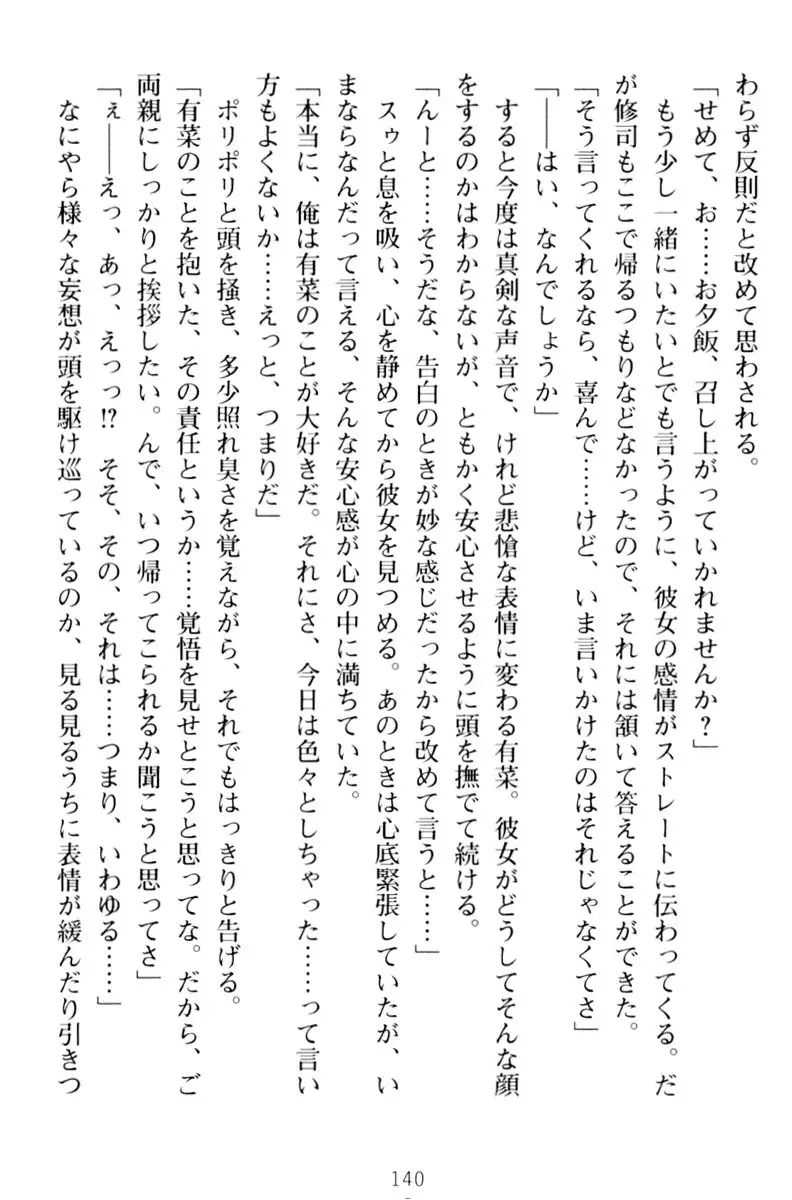 わらず反則だと改めて思わされる。
「せめて、お……お夕飯、召し上がっていかれませんか?」
もう少し一緒にいたいとでも言うように、彼女の感情がストレートに伝わってくる。だ
が修司もここで帰るつもりなどなかったので、それには頷いて答えることができた。
「そう言ってくれるなら、喜んで……けど、いま言いかけたのはそれじゃなくてさ」
「――はい、なんでしょうか」
すると今度は真剣な声音で、けれど悲愴な表情に変わる有菜。彼女がどうしてそんな顔
をするのかはわからないが、ともかく安心させるように頭を撫でて続ける。
「んーと……そうだな、告白のときが妙な感じだったから改めて言うと……」
スゥと息を吸い、心を静めてから彼女を見つめる。あのときは心底緊張していたが、い
まならなんだって言える、そんな安心感が心の中に満ちていた。
「本当に、俺は有菜のことが大好きだ。それにさ、今日は色々としちゃった……って言い
方もよくないか……えっと、つまりだ」
ポリポリと頭を掻き、多少照れ臭さを覚えながら、それでもはっきりと告げる。
「有菜のことを抱いた、その責任というか……覚悟を見せとこうと思ってな。だから、ご
両親にしっかりと挨拶したい。んで、いつ帰ってこられるか聞こうと思ってさ」
「ぇ――えっ、あっ、えっっ!? そそ、その、それは……つまり、いわゆる……」
なにやら様々な妄想が頭を駆け巡っているのか、見る見るうちに表情が緩んだり引きつ
140